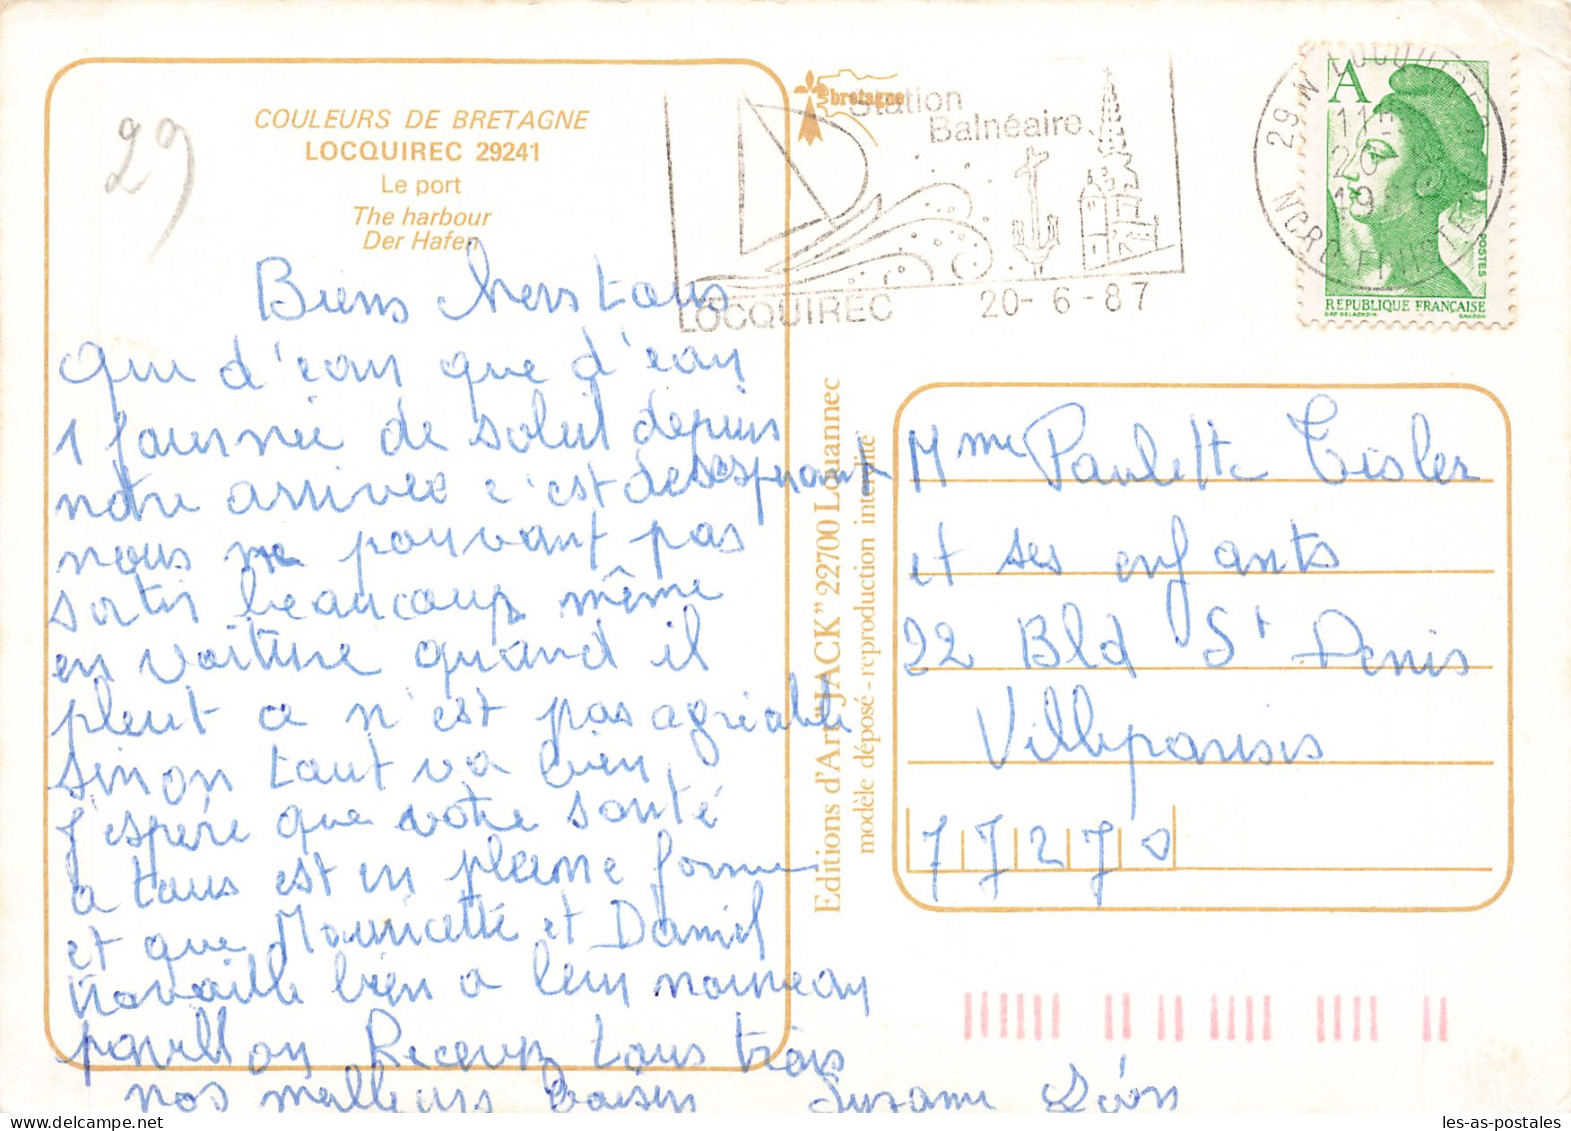 29
COULEURS DE BRETAGNE
LOCQUIREC 29241
Le port
The harbour
Der Hafen
bretagne
Station
Balnéaire
LOCQUIREC 20-6-87
29 N LOCQUIREC
11H
20
19
NORD FINISTERE
A
POSTES
REPUBLIQUE FRANÇAISE
DAP DELACROIX GANDON
Biens chers tous
que d'eau que d'eau
1 journée de soleil depuis
notre arrivée c'est desesperant
nous ne pouvant pas
sortir beaucoup même
en voiture quand il
pleut ca n'est pas agréable
sinon tout va bien
j'espère que votre santé
a tous est en pleine forme
et que Mauricette et Daniel
travaille bien a leur nouveau
pavillon Recevez tous trois
nos meilleurs baisers Suzanne Léon
Editions d'Art "JACK" 22700 Louannec
modèle déposé - reproduction interdite
Mme Paulette Tisler
et ses enfants
22 Bld St Denis
Villeparisis
77270
les-as-postales